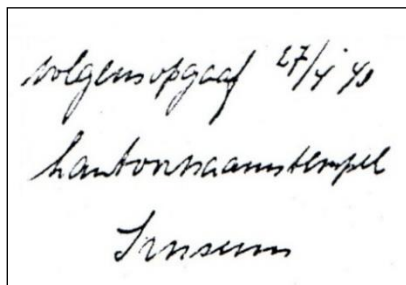 volgens opgaaf 27/4 40
kantoornaamstempel
Irnsum